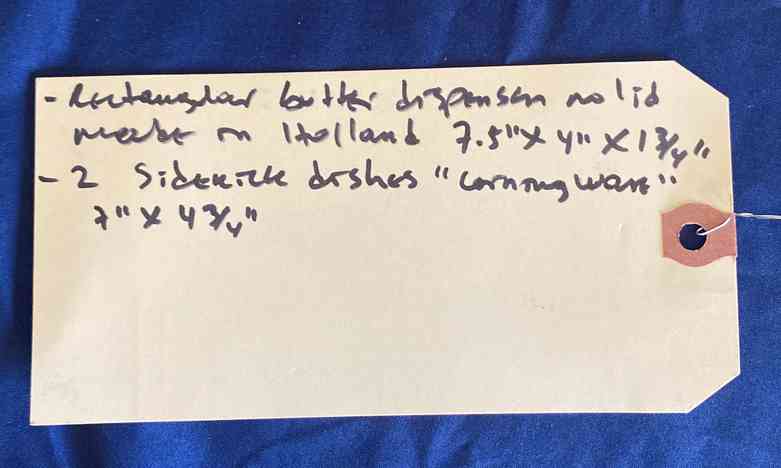 - Rectangular butter dispenser no lid
made in Holland 7.5" X 4" X 1 3/4"
- 2 Sidekick dishes "Corning Ware"
7" X 4 3/4"